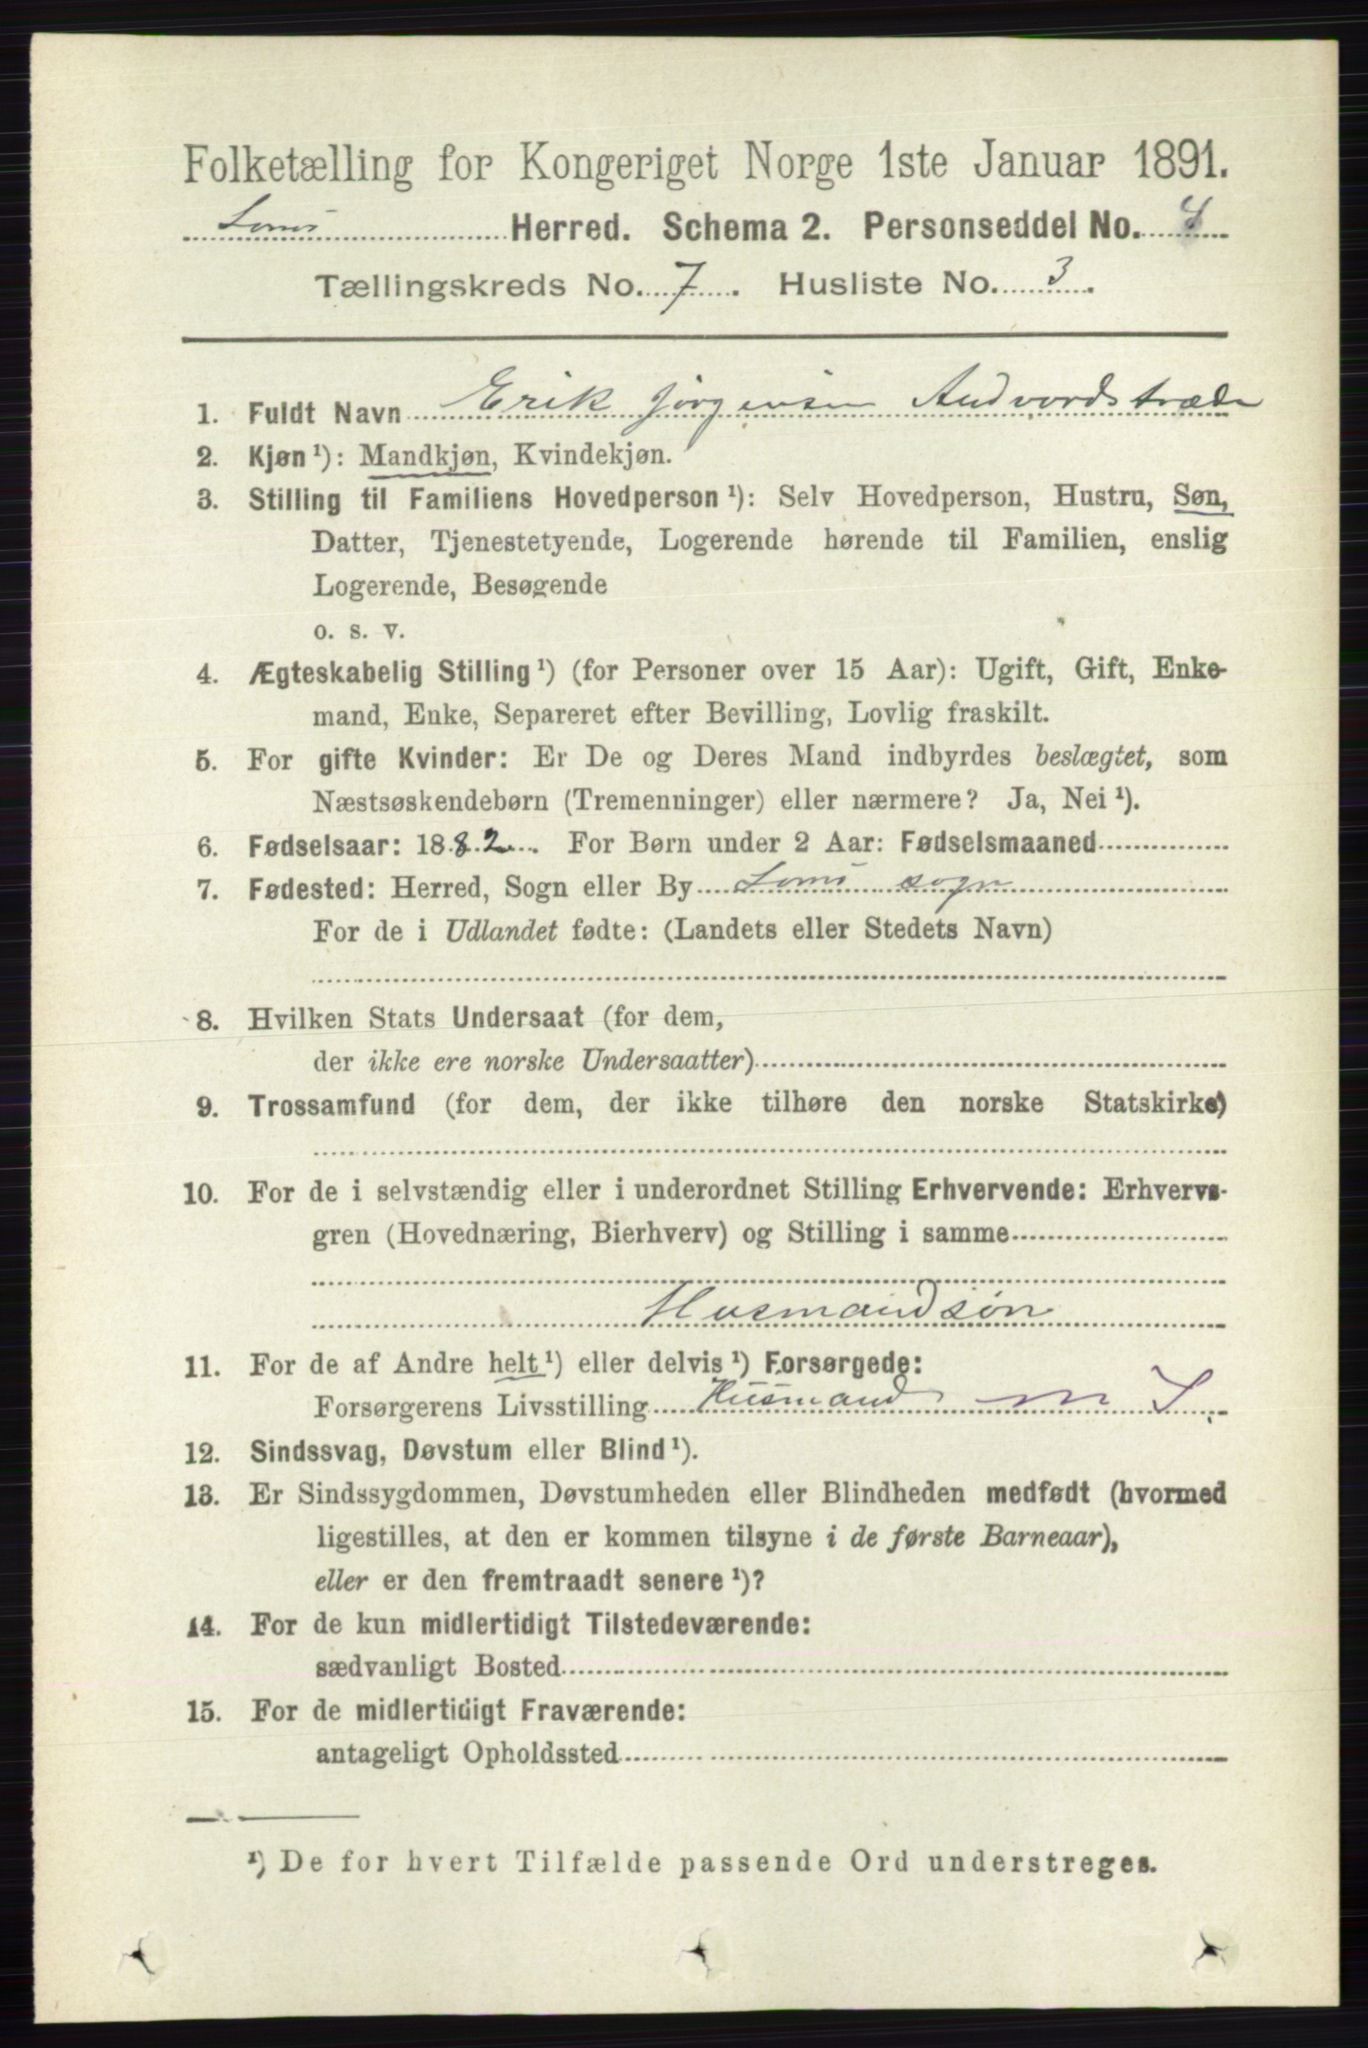 Folketælling for Kongeriget Norge 1ste Januar 1891.
Loms Herred. Schema 2. Personseddel No.
Tællingskreds No. 7. Husliste No. 3.
1. Fuldt Navn Erik Jørgensen Andvordstræde
2. Kjøn ¹): Mandkjøn, Kvindekjøn.
3. Stilling til Familiens Hovedperson ¹): Selv Hovedperson, Hustru, Søn,
Datter, Tjenestetyende, Logerende hørende til Familien, enslig
Logerende, Besøgende
o. s. v.
4. Ægteskabelig Stilling ¹) (for Personer over 15 Aar): Ugift, Gift, Enke-
mand, Enke, Separeret efter Bevilling, Lovlig fraskilt.
5. For gifte Kvinder: Er De og Deres Mand indbyrdes beslægtet, som
Næstsøskendebørn (Tremenninger) eller nærmere? Ja, Nei ¹).
6. Fødselsaar: 1882. For Børn under 2 Aar: Fødselsmaaned
7. Fødested: Herred, Sogn eller By Loms sogn
For de i Udlandet fødte: (Landets eller Stedets Navn)
8. Hvilken Stats Undersaat (for dem,
der ikke ere norske Undersaatter)
9. Trossamfund (for dem, der ikke tilhøre den norske Statskirke)
10. For de i selvstændig eller i underordnet Stilling Erhvervende: Erhvervs-
gren (Hovednæring, Bierhverv) og Stilling i samme
Husmandsøn
11. For de af Andre helt ¹) eller delvis ¹) Forsørgede:
Forsørgerens Livsstilling Husmand m J.
12. Sindssvag, Døvstum eller Blind ¹).
13. Er Sindssygdommen, Døvstumheden eller Blindheden medfødt (hvormed
ligestilles, at den er kommen tilsyne i de første Barneaar),
eller er den fremtraadt senere ¹)?
14. For de kun midlertidigt Tilstedeværende:
sædvanligt Bosted
15. For de midlertidigt Fraværende:
antageligt Opholdssted
¹) De for hvert Tilfælde passende Ord understreges.